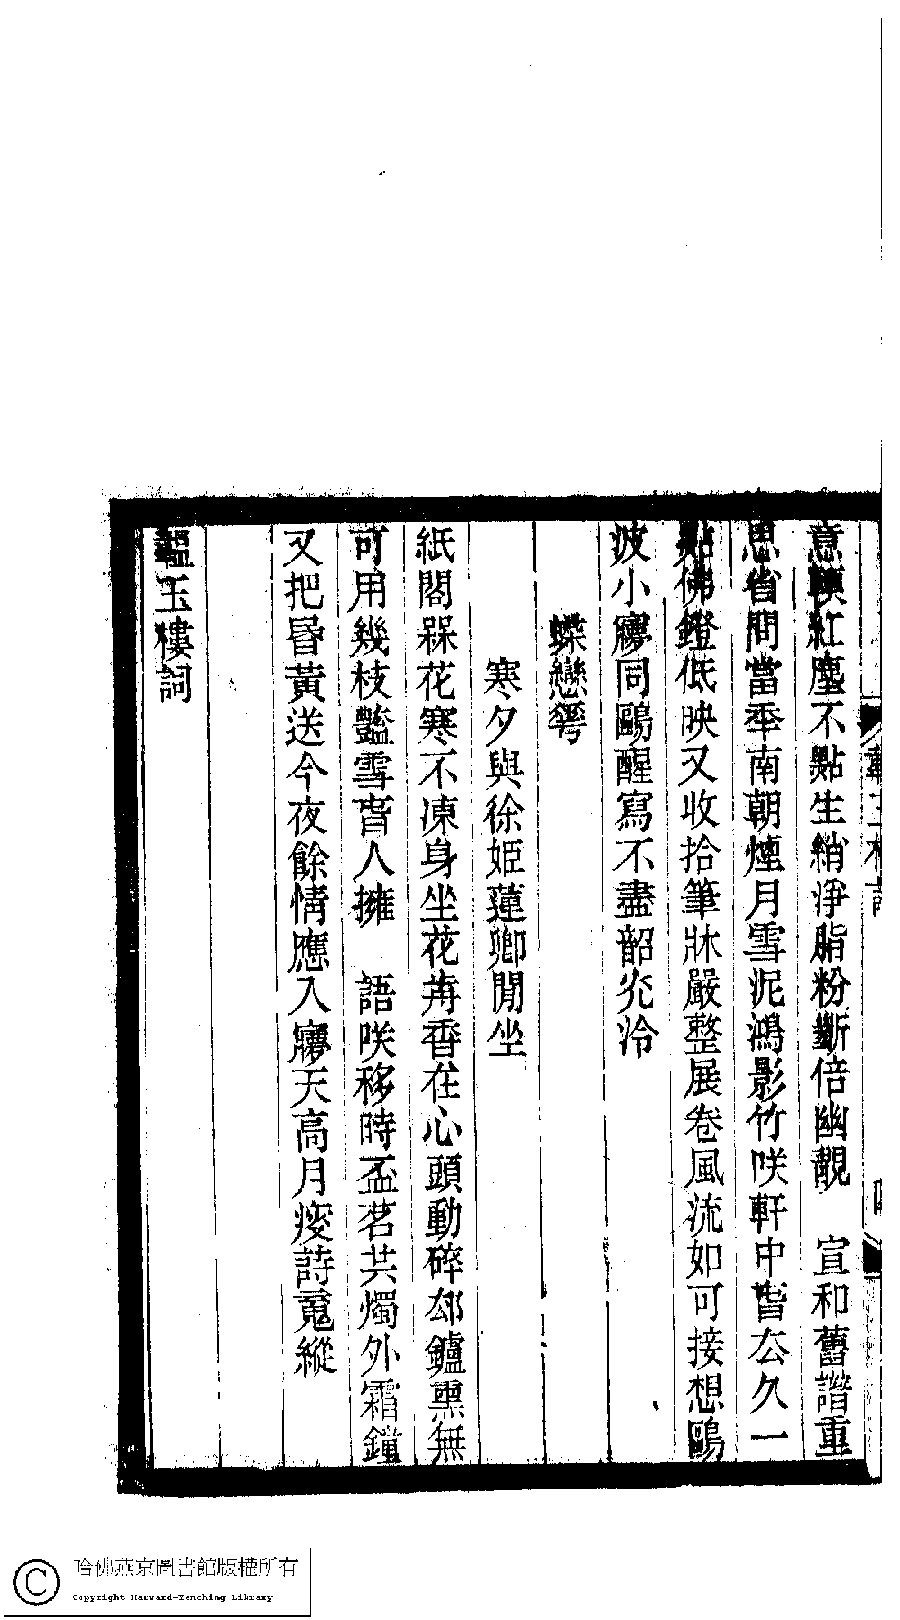 意䁐紅塵不點生綃淨脂粉斷倍幽靚　宣和舊譜重
思省間當秊南朝煙月雪泥鴻影竹咲軒中皆厺久一
點佛鐙低映又收拾筆牀嚴整展卷風流如可接想鷗
波小㝱同鷗醒寫不盡韶灮泠
蝶戀䔢
寒夕與徐姬蓮卿閒坐
紙閣槑花寒不凍身坐花苒香在心頭動碎卻鑪熏無
可用幾枝豔雪旹人擁　語咲移時盃茗共燭外霜鐘
又把昬黃送今夜餘情應入㝱天高月瘦詩䰟縱
韞玉樓詞
哈佛燕京圖書館版權所有
Copyright Harvard-Yenching Library